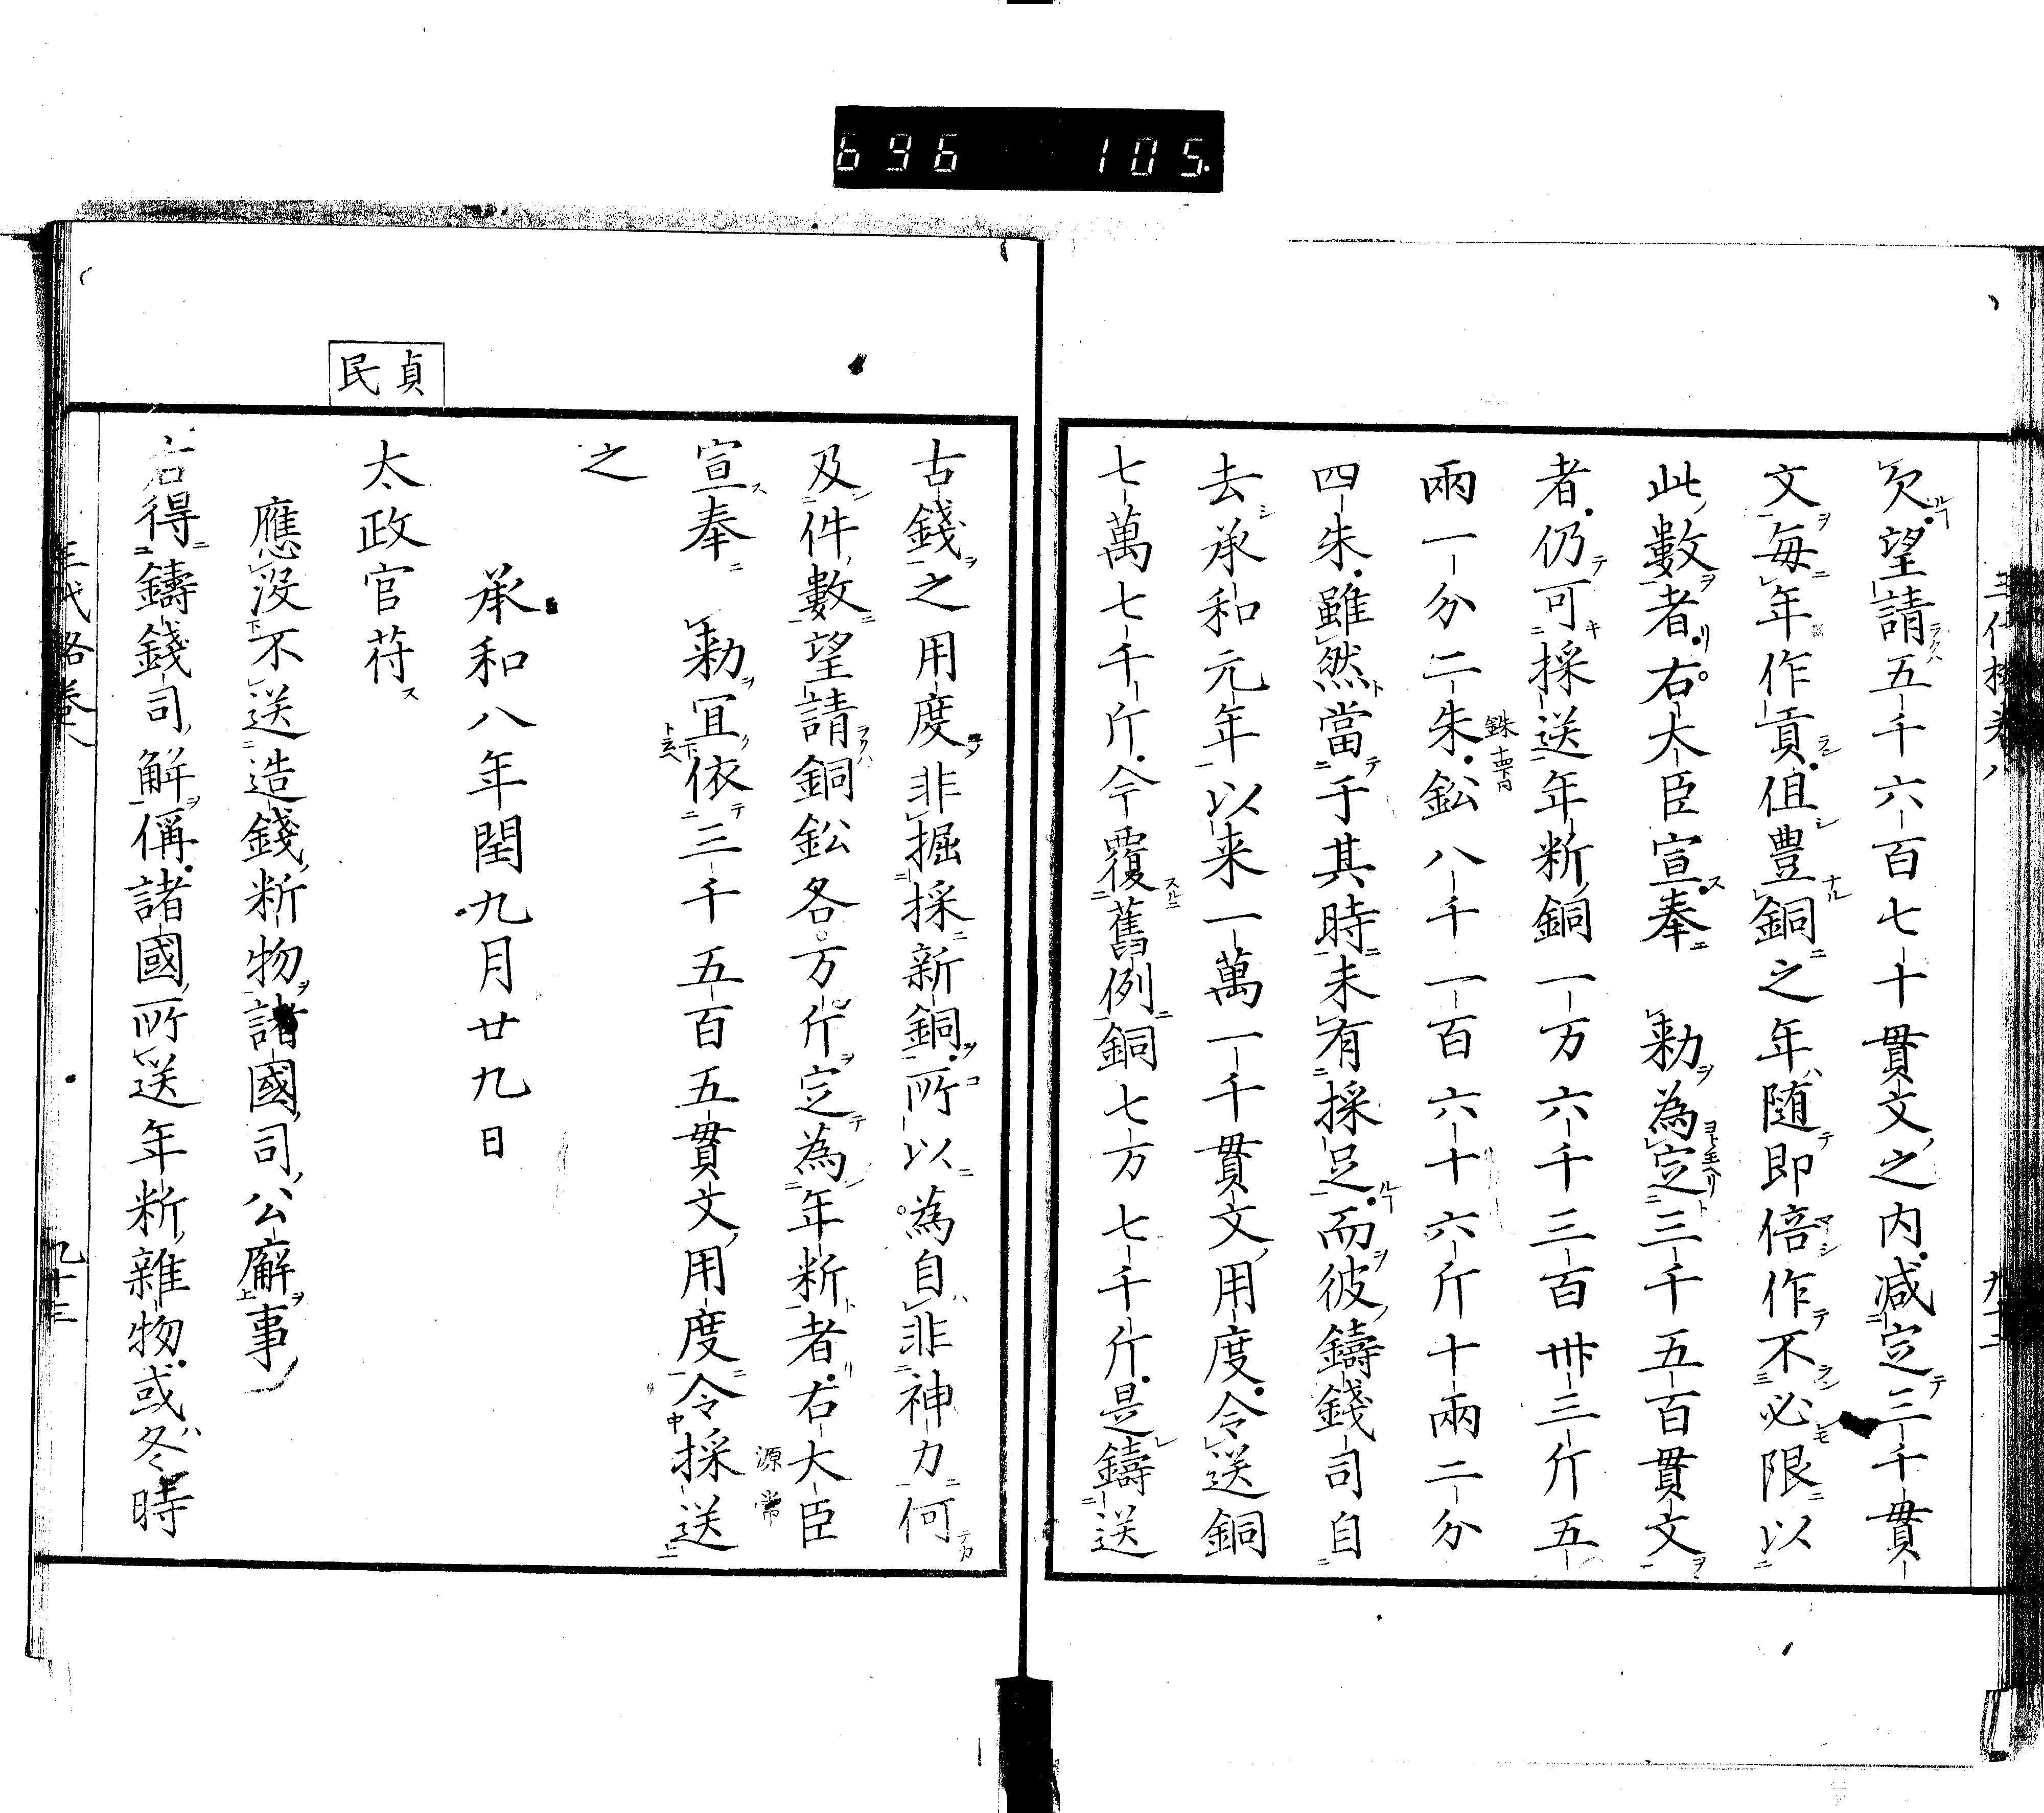 696 105.
欠望請五千六百七十貫文之内減定三千貫
文毎年作貢但豊銅之年随即倍作不必限以
此數者右大臣宣奉　勅為定三千五百貫文
者仍可採送年断銅一万六千三百卅三斤五
兩一分二朱鈆八千一百六十六斤十兩二分
四朱雖然當于其時未有採足而彼鑄錢司自
去承和元年以来一萬一千貫文用度令送銅
七萬七千斤今覆舊例銅七万七千斤是鑄送
貞民
古錢之用度非掘採新銅所以為自非神力何
及件數望請銅鈆各万斤定為年断者右大臣
源常
宣奉　勅宜依三千五百五貫文用度令採送
之
承和八年閏九月廿九日
太政官符
應没不送造錢断物諸國司公廨事
右得鑄錢司解偁諸國所送年断雜物或冬時
三代格巻八
九十三